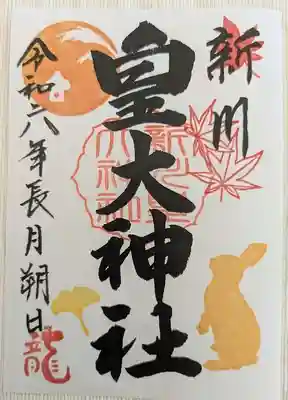 新川
皇大神社
令和六年長月朔日
龍